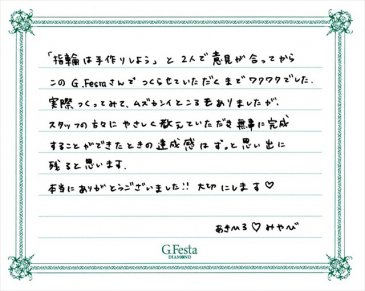 「指輪は手作りしよう」と2人で意見が合ってから
このG.Festaさんでつくらせていただくまでワクワクでした。
実際つくってみて、ムズカシイところもありましたが、
スタッフの方々にやさしく教えていただき無事に完成
することができたときの達成感はずっと思い出に
残ると思います。
本当にありがとうございました!!大切にします♡
あきひろ♡みやび
G.Festa
DIAMOND